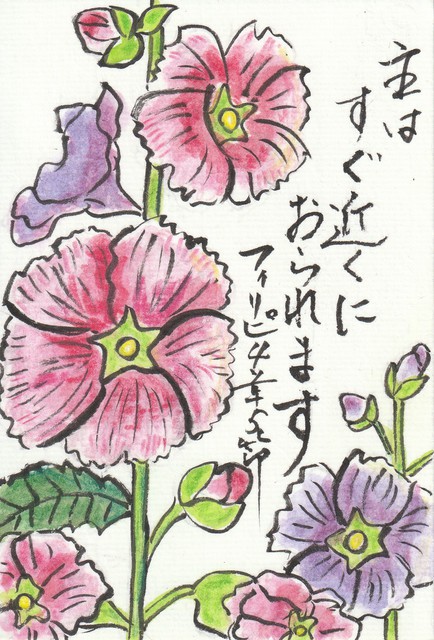 主は
すぐ近くに
おられます
フィリピ4章5節